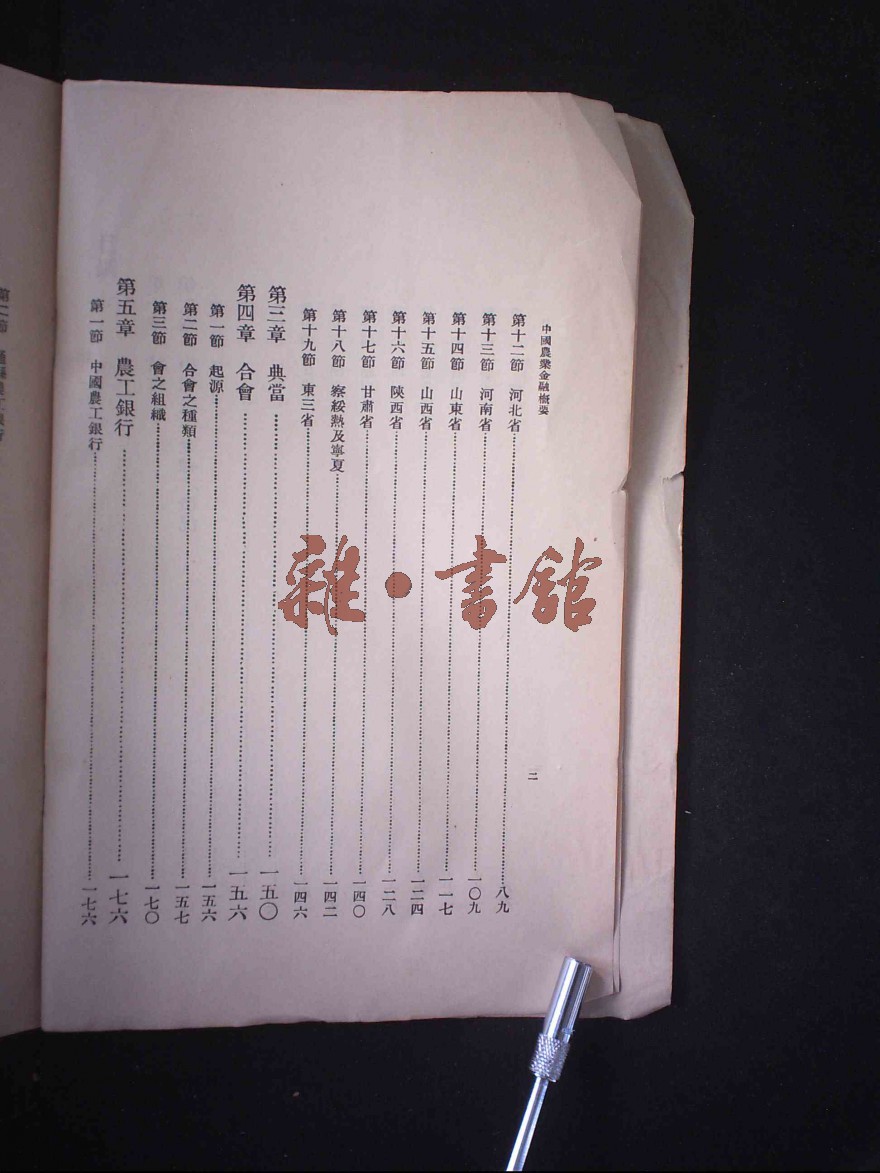 中國農業金融概要
二
第十二節 河北省……八九
第十三節 河南省……一〇九
第十四節 山東省……一一七
第十五節 山西省……一二四
第十六節 陝西省……一二八
第十七節 甘肅省……一四〇
第十八節 察綏熱及寧夏……一四二
第十九節 東三省……一四六
第三章 典當……一五〇
第四章 合會……一五六
第一節 起源……一五六
第二節 合會之種類……一五七
第三節 會之組織……一七〇
第五章 農工銀行……一七六
第一節 中國農工銀行……一七六
雜·書館